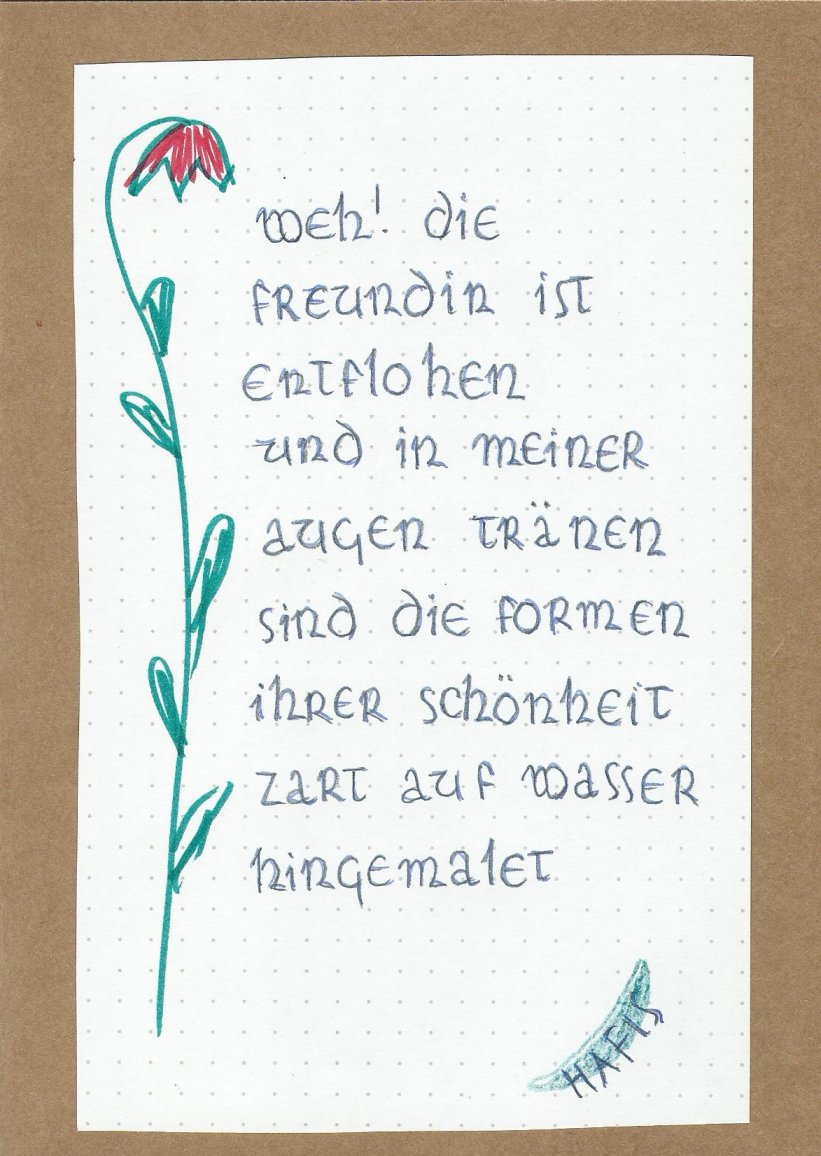 weh! die
freundin ist
entflohen
und in meiner
augen tränen
sind die formen
ihrer schönheit
zart auf wasser
hingemalet
HAFIS